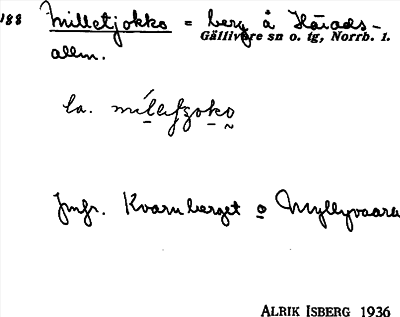 188 Milletjokko = berg å Härads-
Gällivare sn o. tg, Norrb. l.
allm.
la.
Jmfr. Kvarnberget o Myllyvaara
ALRIK ISBERG 1936